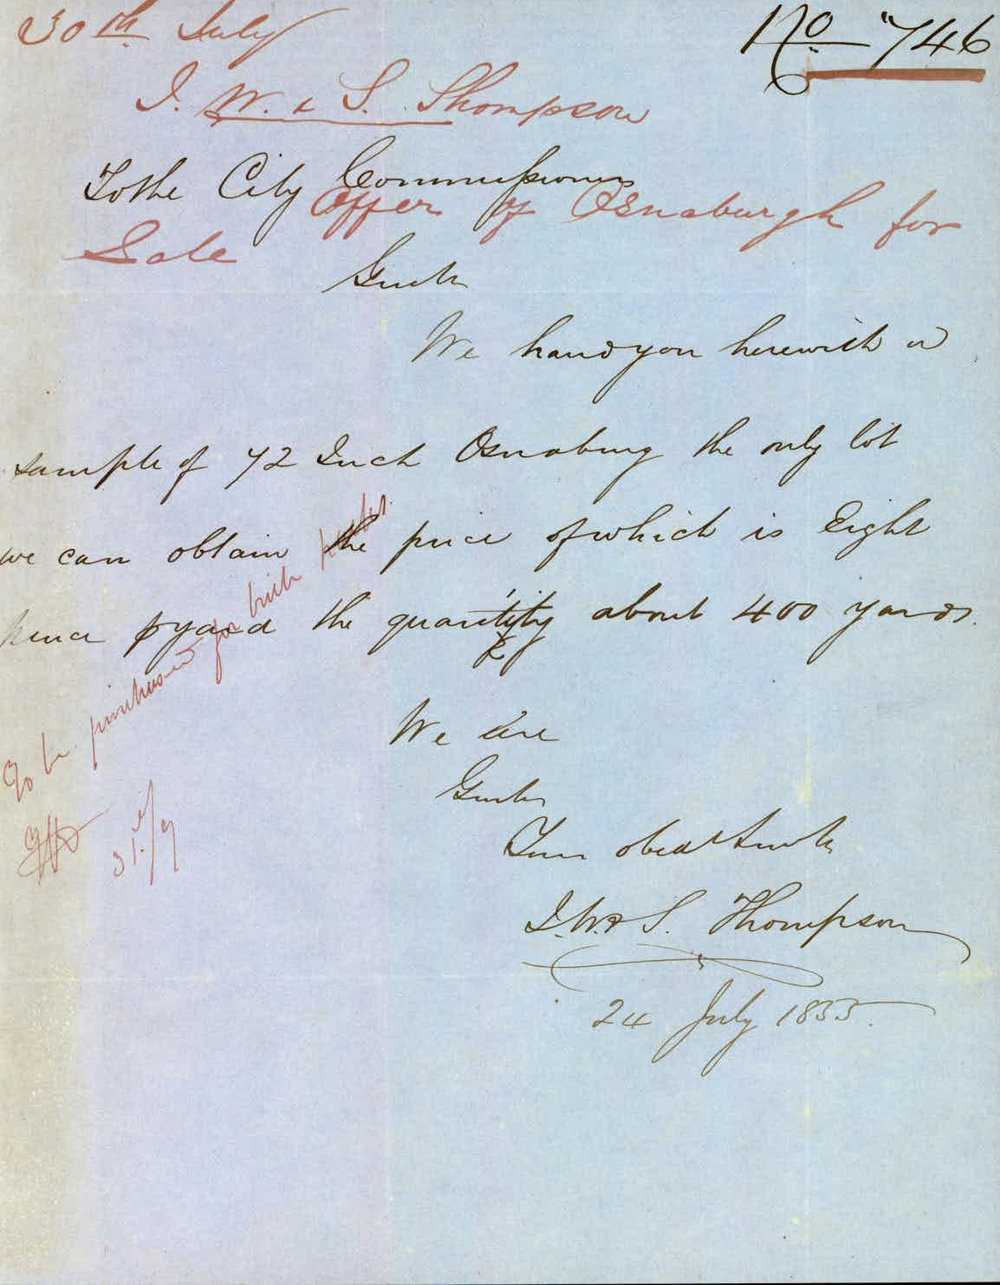 30th July
No 746
J. W. & S. Thompson
To the City Commissioners
Offer of Osnaburgh for
Sale
Gents
We hand you herewith a
sample of 72 Inch Osnaburg the only lot
we can obtain the price of which is Eight
pence pyard the quantity about 400 yards.
To be purchased for
31/7
We are
Gents
Your obedt Servts
J. W. & S. Thompson
24 July 1855.